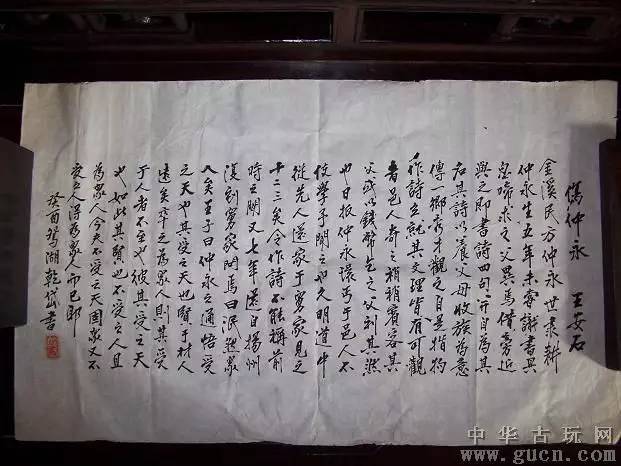 傷仲永 王安石
金溪民方仲永世隶耕
仲永生五年未嘗識書具
忽啼求之父異焉借旁近
與之即書詩四句并自為其
名其詩以養父母收族為意
傳一鄉秀才觀之自是指物
作詩立就其文理皆有可觀
者邑人奇之稍稍賓客其
父或以錢幣乞之父利其然
也日扳仲永環丐于邑人不
使學予聞之也久明道中
從先人還家于舅家見之
十二三矣令作詩不能稱前
時之聞又七年還自揚州
復到舅家問焉曰泯然衆
人矣王子曰仲永之通悟受
之天也其受之天也賢于材人
遠矣卒之為衆人則其受
于人者不至也彼其受之天
也如此其賢也不受之人且
為衆人今夫不受之天固衆又不
受之人得為衆人而已耶
癸酉鵞湖乾岱書
中华古玩网
www.gucn.com